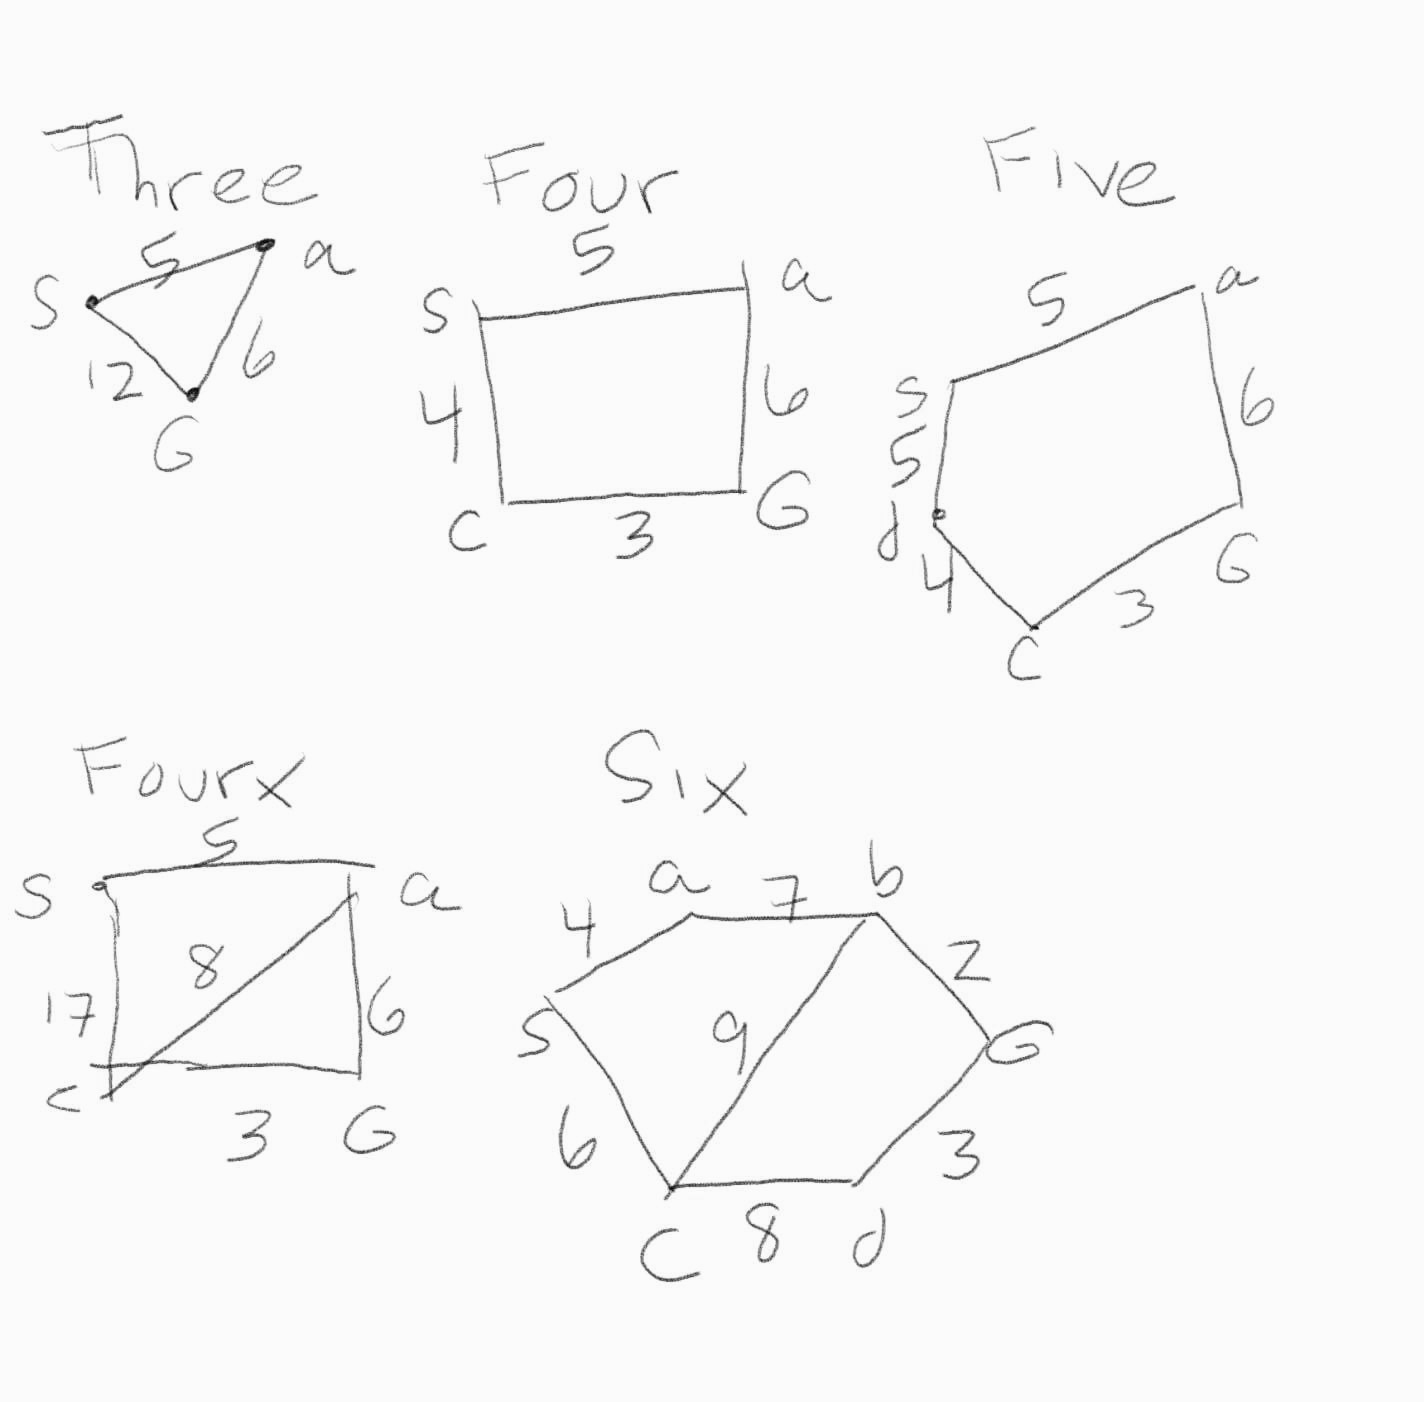 Three
5
S a
12 6
G
Four
5
S a
4 6
C 3 G
Five
5 a
S
5 6
d
4 3 G
C
Fourx
5
S a
8
17 6
C
3 G
Six
a 7 b
4 2
S 9 G
6 3
C 8 d